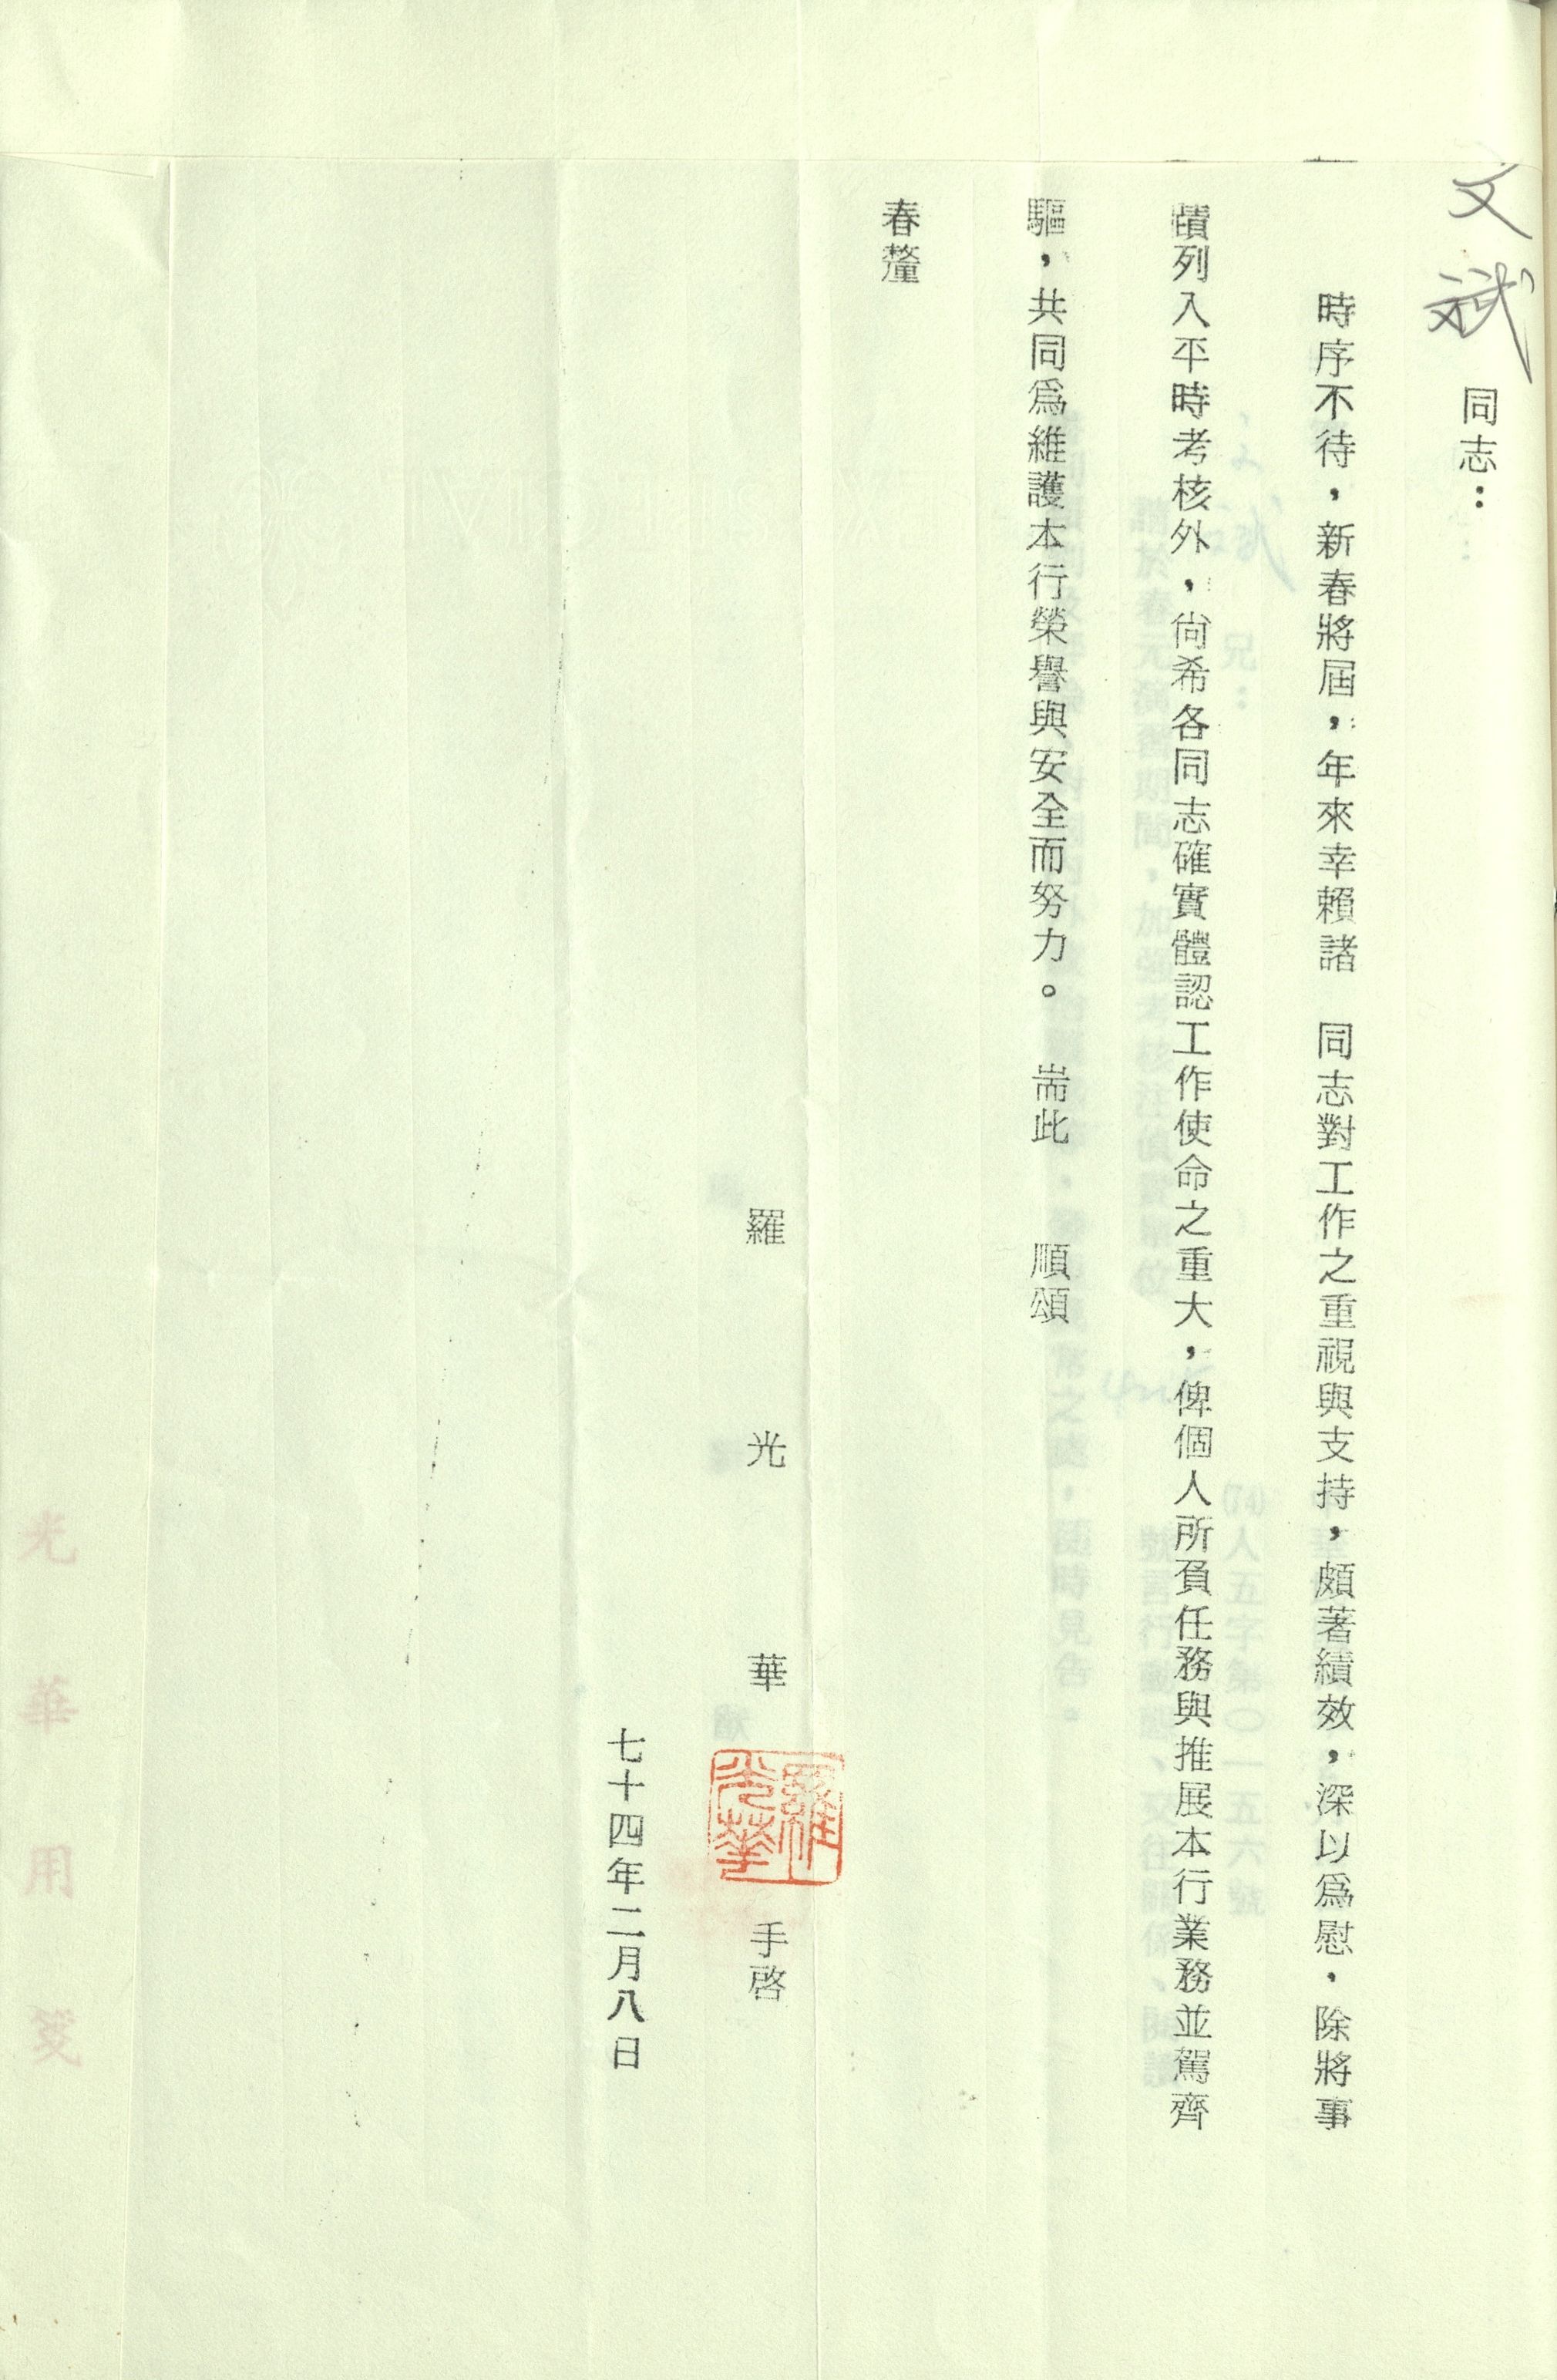 文斌 同志：
時序不待，新春將屆，年來幸賴諸 同志對工作之重視與支持，頗著績效，深以為慰，除將事
蹟列入平時考核外，尚希各同志確實體認工作使命之重大，俾個人所負任務與推展本行業務並駕齊
驅，共同為維護本行榮譽與安全而努力。 耑此 順頌
春釐
羅光華 手啓
羅光華
七十四年二月八日
光華用箋